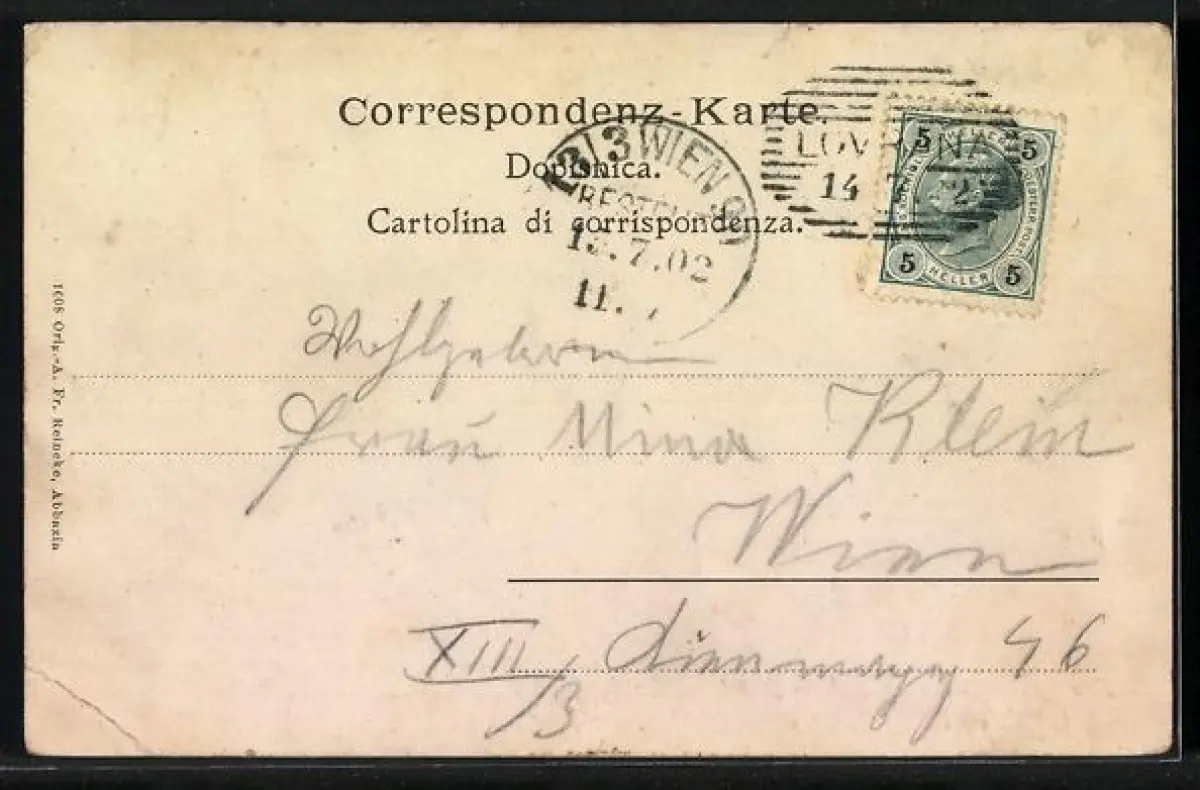 Correspondenz-Karte.
Dopisnica.
Cartolina di corrispondenza.
13/3 WIEN 9
BESTELLT
15.7.02
11.
LOVRANA
14
5 5
5 HELLER 5
1608 Orig.-A. Fr. Reineke, Abbazia
Wohlgeboren
Frau Mina Klein
Wien
XIII/3 46